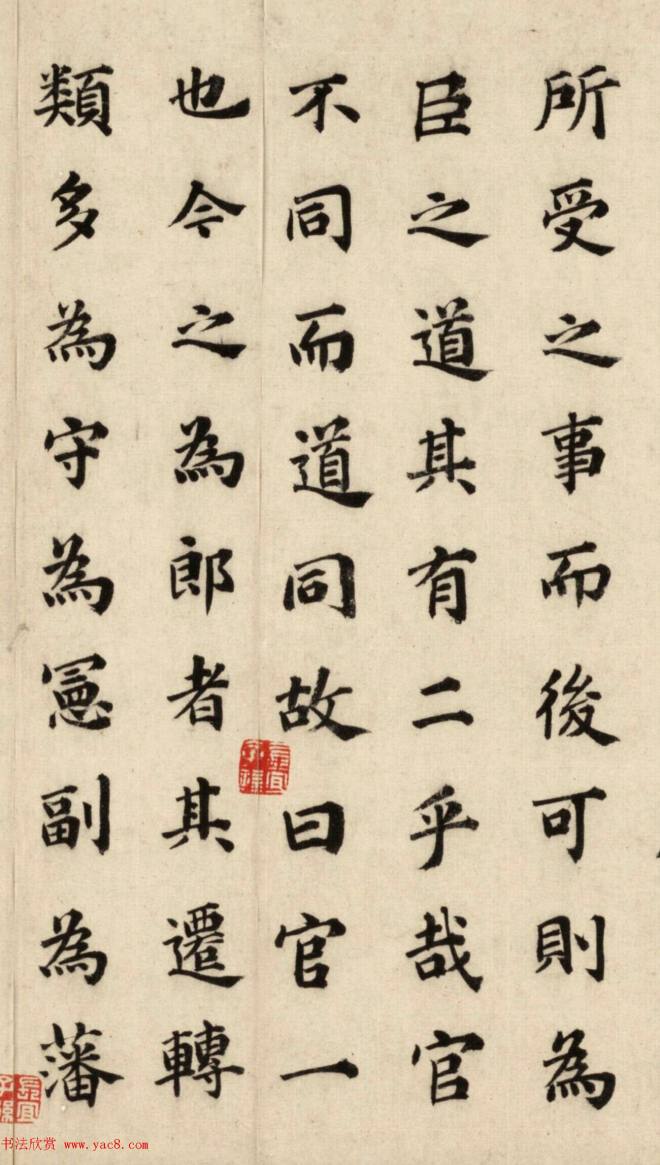 所受之事而後可則為
臣之道其有二乎哉官
不同而道同故曰官一
也今之為郎者其遷轉
類多為守為憲副為藩
長宜子孫
長宜子孫
书法欣赏 www.yac8.com